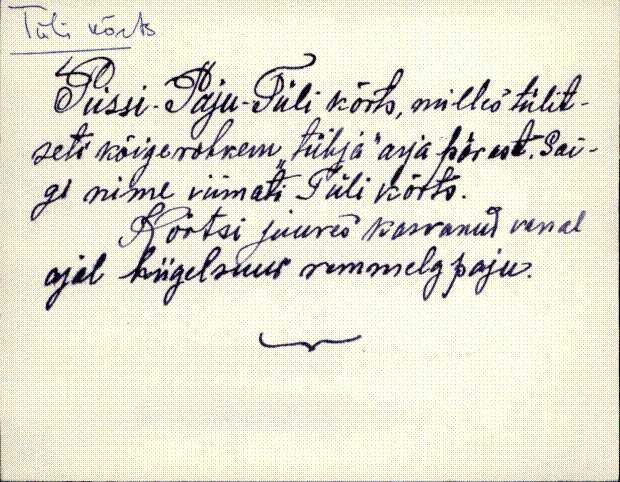 Tüli kõrts
Püssi-Paju-Tüli kõrts, milles tülit-
seti kõige rohkem „tühja" asja pärast. Sai-
gi nime viimati Tüli kõrts.
Kõrtsi juures kasvanud vanal
ajal hiigelsuur remmelgpaju.